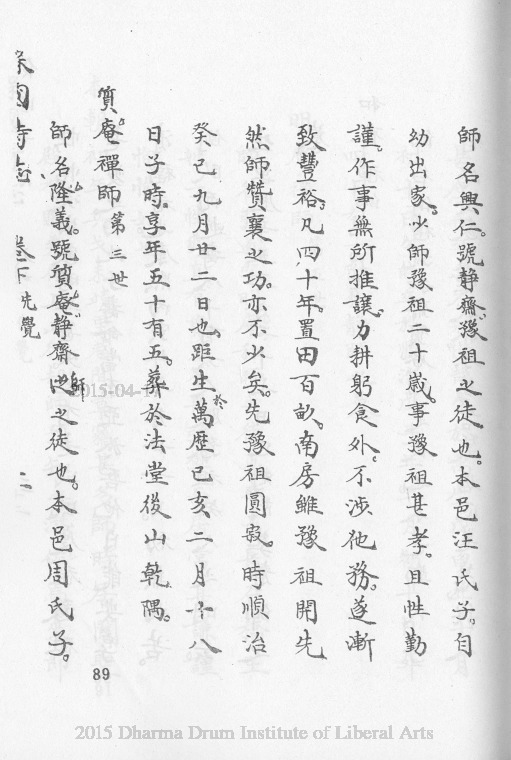 師名興仁。號静齋。豫祖之徒也。本邑汪氏子。自
幼出家。少師豫祖二十歲。事豫祖甚孝。且性勤
謹。作事無所推讓。力耕躬食外。不涉他務。遂漸
致豐裕。凡四十年。置田百畝。南房雖豫祖開先
然師贊襄之功。亦不少矣。先豫祖圓寂。時順治
癸巳九月廿二日也。距生於萬歷己亥二月十八
日子時。享年五十有五。葬於法堂後山乾隅。
質庵禪師第三世
師名隆義。號質庵。静齋師之徒也。本邑周氏子。
卷下 先覺 二
89
2015-04-1
2015 Dharma Drum Institute of Liberal Arts